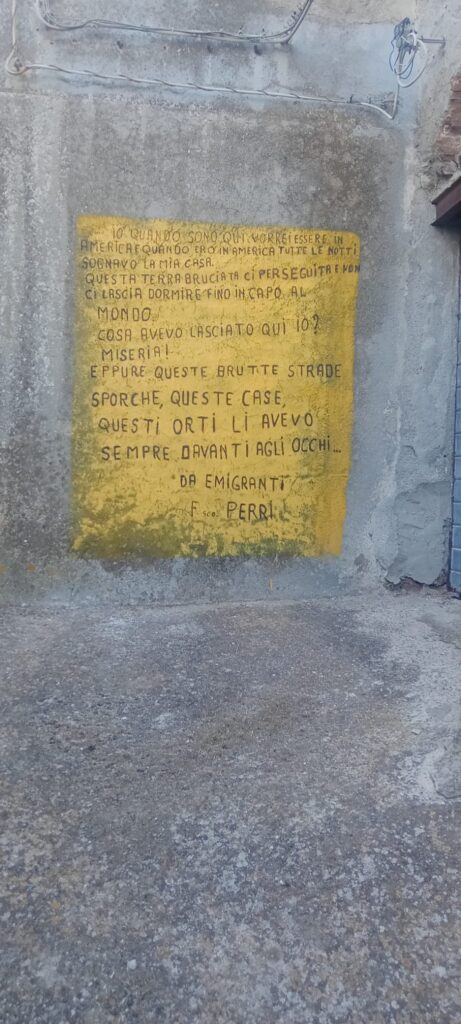 IO QUANDO SONO QUI VORREI ESSERE IN
AMERICA E QUANDO ERO IN AMERICA TUTTE LE NOTTI
SOGNAVO LA MIA CASA.
QUESTA TERRA BRUCIATA CI PERSEGUITA E NON
CI LASCIA DORMIRE FINO IN CAPO AL
MONDO.
COSA AVEVO LASCIATO QUI IO?
MISERIA!
EPPURE QUESTE BRUTTE STRADE
SPORCHE, QUESTE CASE,
QUESTI ORTI LI AVEVO
SEMPRE DAVANTI AGLI OCCHI...
DA EMIGRANTI
F sco. PERRI